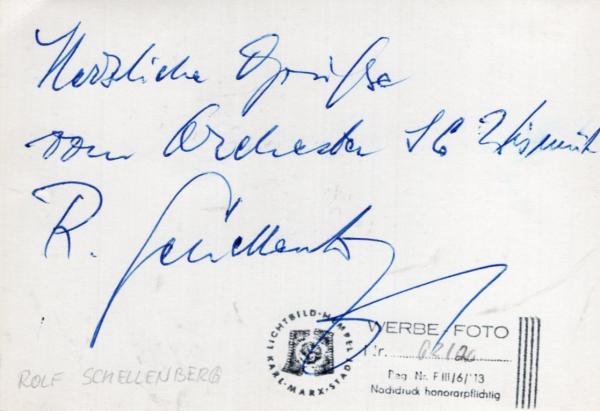 Herzliche Grüße
vom Orchester SG Wismut
R. Schellenberg
LICHTBILD-HEMPEL
KARL-MARX-STADT
WERBE-FOTO
Nr.
Reg. Nr. F III/6/113
Nachdruck honorarpflichtig
ROLF SCHELLENBERG